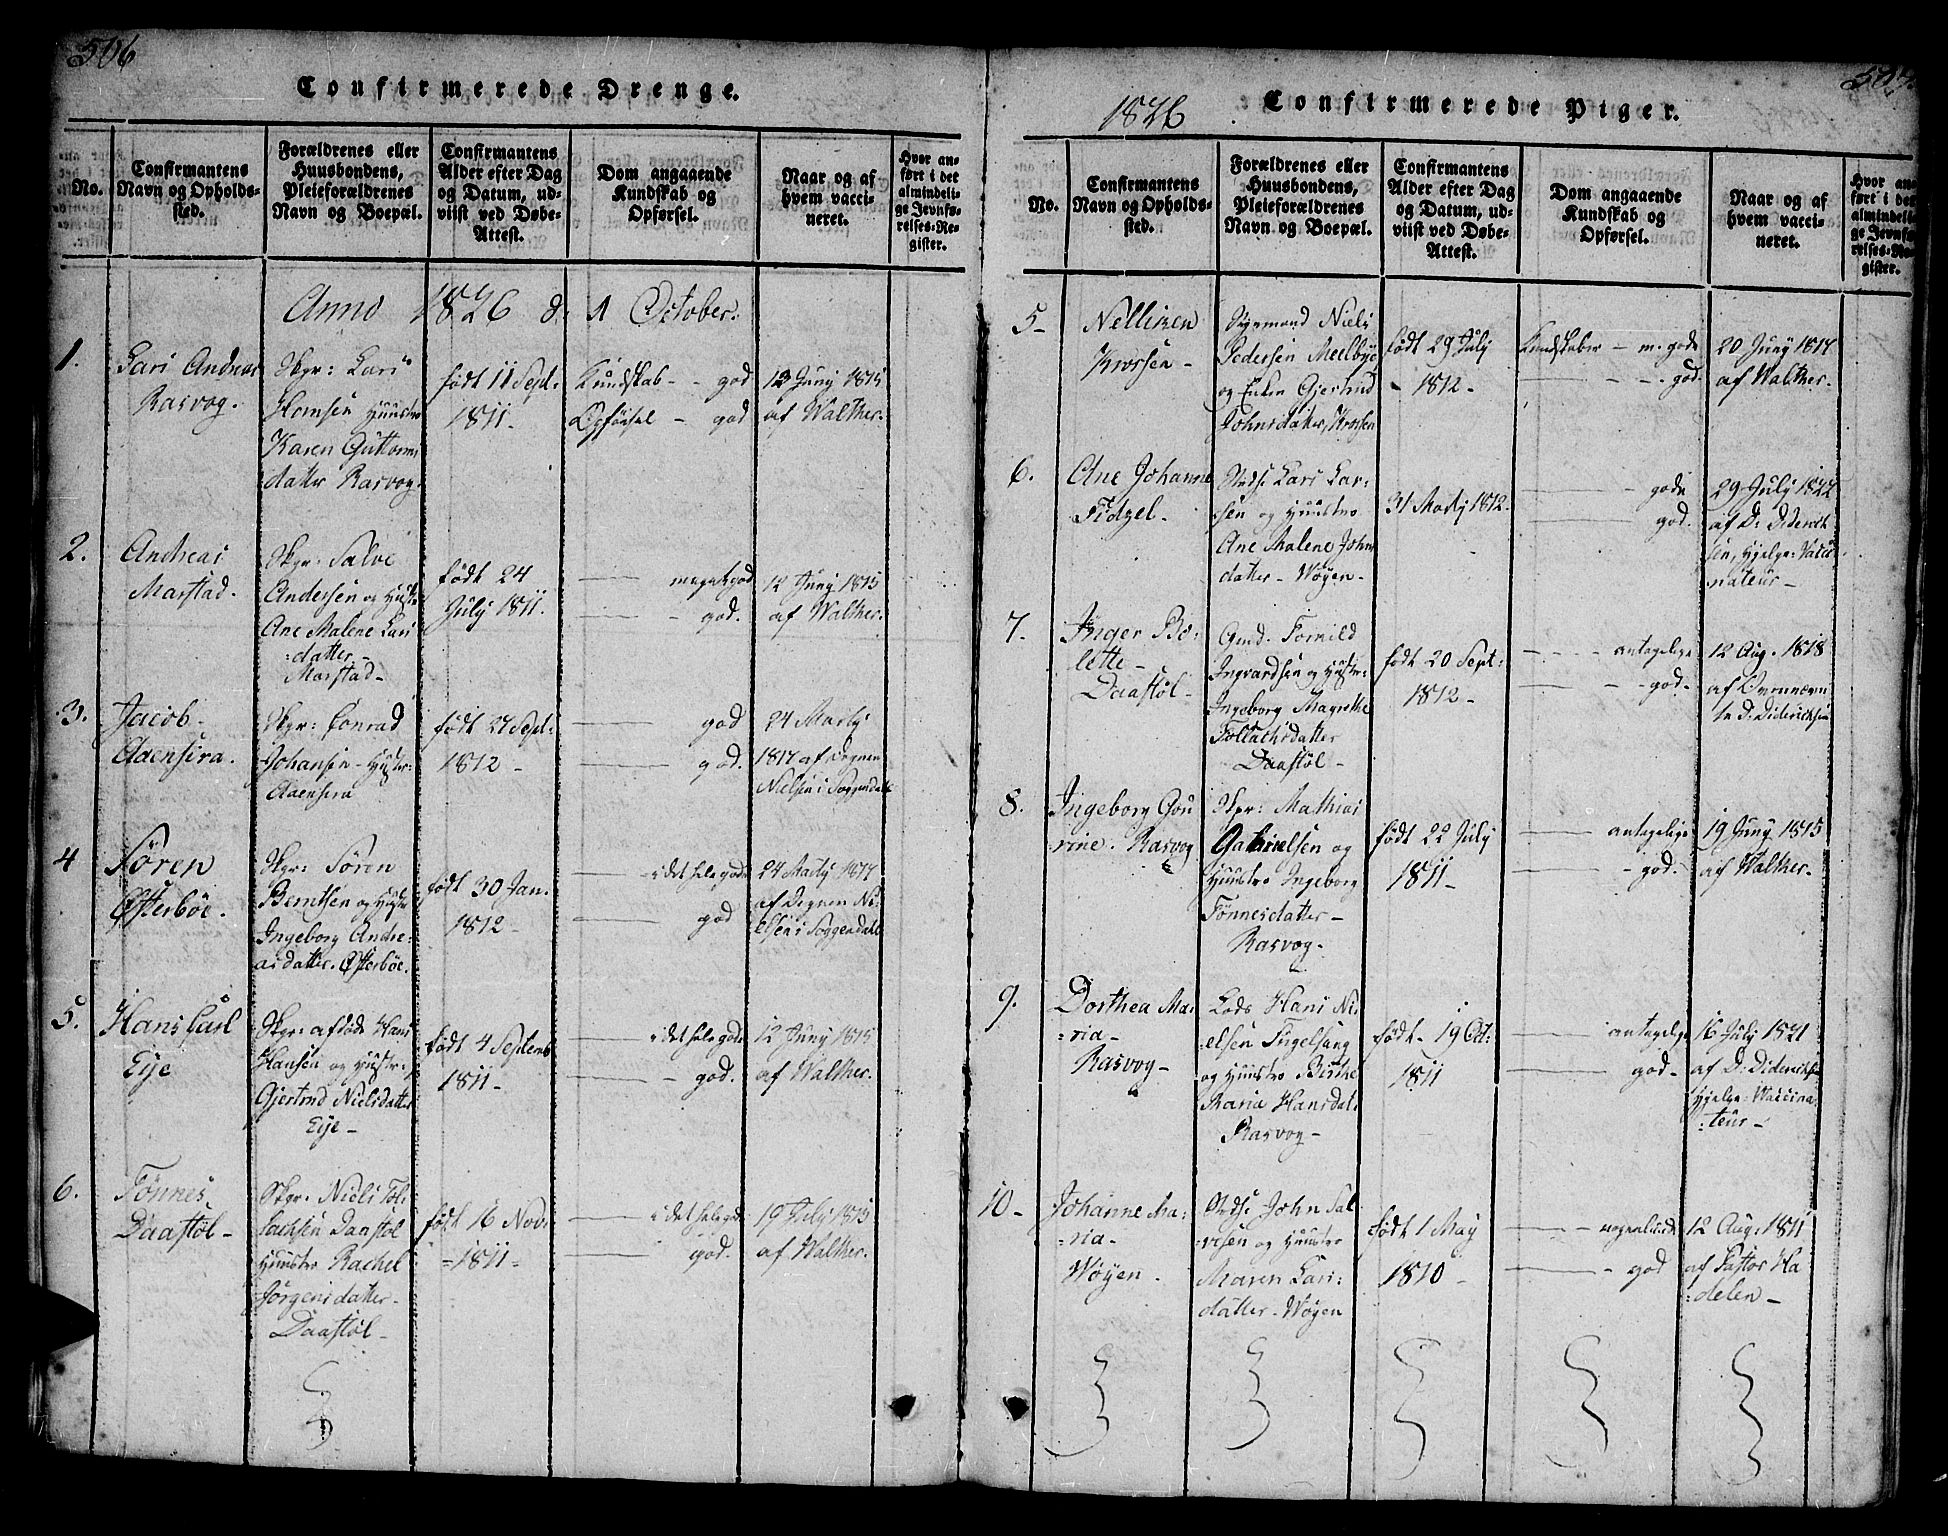 506
Confirmerede Drenge.
No.
Confirmantens
Navn og Opholds-
sted.
Forældrenes eller
Huusbondens,
Pleieforældrenes
Navn og Boepæl.
Confirmantens
Alder efter Dag
og Datum, ud-
viist ved Døbe-
Attest.
Dom angaaende
Kundskab og
Opførsel.
Naar og af
hvem vacci-
neret.
Hvor an-
ført i det
almindeli-
ge Jevnfø-
relses-Re-
gister.
Anno 1826 d: 1 October.
1.
Lars Andreas
Rasvog.
Skpr: Lars
Homsen Huustro
Karen Guttorms
datter Rasvog.
født 11 Sept:
1811.
Kundskab - - god
Opførsel - god
12 Juny 1815
af Walther.
2.
Andreas
Marstad.
Skpr: Salve
Andersen og Hustr
Ane Malene Lars
:datter -
Marstad -
født 24
July 1811.
meget god
- god.
12 Juny 1815
af Walther.
3.
Jacob
Aaensira.
Skpr: Conrad
Johansen - Hustr:
Aaensira
født 27 Sept:
1812 -
god
god.
24 Martj
1817 af Degnen
Nielsen i Soggendahl
4
Søren
Østerbøe.
Skpr: Søren
Berntsen og Hustr
Ingeborg Andre:
asdatter. Østerbøe.
født 30 Jan:
1812 -
i det hele god
god
24 Martj 1817
af Degnen Ni
elsen i Soggendahl
5.
Hans Carl
Eije
Skpr: afdøde Hans
Hansen og Hustr:
Gjertrud Nielsdatter
Eije -
født 4 Septemb
1811 -
i det hele god
- god.
12 Juny 1815
af Walther.
6.
Tønnes
Daastøl -
Skpr: Niels Tol:
lachsen Daastøl
Huustro Rachel
Jørgensdatter -
Daastøl -
født 16 Nov:
1811 -
i det hele god
god.
19 July 1815
af Walther.
1826
Confirmerede Piger.
507.
No.
Confirmantens
Navn og Opholds-
sted.
Forældrenes eller
Huusbondens,
Pleieforældrenes
Navn og Boepæl.
Confirmantens
Alder efter Dag
og Datum, ud-
viist ved Døbe-
Attest.
Dom angaaende
Kundskab og
Opførsel.
Naar og af
hvem vacci-
neret.
Hvor an-
ført i det
almindeli-
ge Jevnfø-
relses-Re-
gister.
5 -
Nelliken
Krossen -
Niels
Pedersen Meelbye
og Enken Gjertrud
Johnsdatter, Krossen
født 29 July
- 1812 -
Kundskaber - m. gode
- god.
20 Juny 1817
af Walther.
6.
Ane Johanne
Fidzel.
Lars Lar:
sen og Huustro
Ane Malene Johns
datter - Wøyen -
31 Martj 1812.
gode
god.
29 July 1822
af D: Diderich
sen, Hjelpe: Vacci
nateur -
7.
Inger Bo:
lette -
Daastøl -
Gmd. Tormild
Ingvardsen og Hustr:
Ingeborg Magrethe
Tollachsdatter
Daastøl -
født 20 Sept:
1812 -
antagelige
- god.
12 Aug. 1818
af
D: Diderichsen
8.
Ingeborg Gou
rine. Rasvog
Skpr: Mathias
Gabrielsen og
Huustro Ingeborg
Tønnesdatter -
Rasvog -
født 22 July
1811 -
antagelige
- god.
19 Juny 1815
af Walther.
9.
Dorthea Ma:
:ria -
Rasvog -
Lods Hans Ni:
:elsen Fugelsang
og Huustro Birthe
Maria Hansdat:
Rasvog -
født - 19 Oct:
1811
antagelige
god -
16 July 1821
af D: Diderichs
Hjelpe: Waccina
:teur -
10 -
Johanne Ma:
:ria -
Wøyen -
John Sal
:vesen og Huustro
Maren Lars:
datter - Wøyen
født 1 May
1810 -
nogenlunde
- god
12 Aug: 1811
af Pastor Ha
:delen -